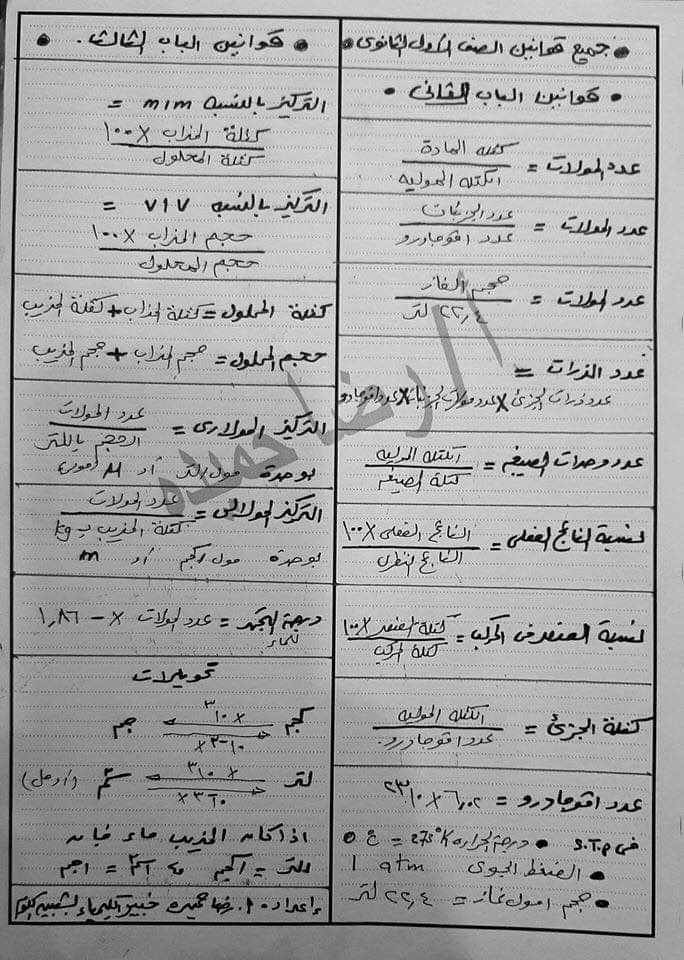 • جميع قوانين الصف الأول الثانوى •
• قوانين الباب الثانى •
عدد المولات = كتلة المادة / الكتلة المولية
عدد المولات = عدد الجزيئات / عدد افوجادرو
عدد المولات = حجم الغاز / ٢٢,٤ لتر
عدد الذرات =
عدد ذرات الجزئ X عدد مولات الجزيئات X عدد افوجادرو
عدد وحدات الصيغة = الكتلة المولية / كتلة الصيغة
نسبة الناتج الفعلى = الناتج الفعلى X ١٠٠ / الناتج النظرى
نسبة العنصر فى المركب = كتلة العنصر X ١٠٠ / كتلة المركب
كتلة الجزئ = الكتلة المولية / عدد افوجادرو.
عدد افوجادرو = ٦,٠٢ X ١٠ ٢٣
فى S.T.P • درجة الحرارة 273°K = ع 0
• الضغط الجوى 1 atm
• حجم امول غاز = ٢٢,٤ لتر
• قوانين الباب الثالث. •
التركيز بالنسبه m/m =
كتلة المذاب X ١٠٠ / كتلة المحلول
التركيز بالنسبه V/V =
حجم المذاب X ١٠٠ / حجم المحلول
كتلة المحلول = كتلة المذاب + كتلة المذيب
حجم المحلول = حجم المذاب + حجم المذيب
التركيز المولارى = عدد المولات / الحجم باللتر
بوحدة مول/لتر أو M (مولر)
التركيز المولالى = عدد المولات / كتلة المذيب ب kg
بوحدة مول/كجم أو m
درجة التجمد للماء = عدد المولات X - ١,٨٦
تحويلات
كجم X ١٠ ٣ جم
X ١٠ -٣
لتر X ١٠ ٣ سم٣ (أو مل)
X ١٠ -٣
اذا كان المذيب ماء فإن
١لتر = ١كجم ، ١سم٣ = ١جم
إعداد • أ. رضا حميده خبير الكيمياء
أ/ رضا حميده